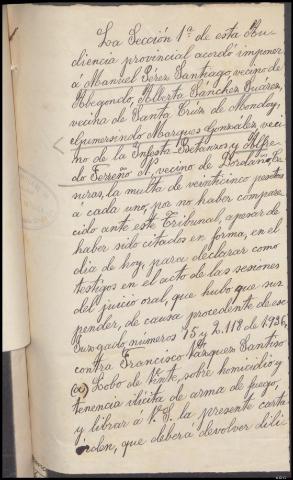 La Sección 1ª de esta Au-
diencia provincial acordó imponer
á Manuel Pérez Santiago, vecino de
Abegondo, Alberta Sánchez Suarez,
vecina de Santa Cruz de Mondoy,
Gumersindo Marques González, veci-
no de la Infesta-Betanzos y Alfre-
do Ferreño Nº, vecino de
suras, la multa de veinticinco pesetas
á cada uno, por no haber compare-
cido ante este Tribunal, apesar de
haber sido citados en forma, en el
dia de hoy, para declarar como
testigos en el acto de las sesiones
del juicio oral, que hubo que sus-
pender, de causa procedente de ese
Juzgado, números 15 y 2.118 de 1936,
contra Francisco Vázquez Santiso
(a) Lobo de Vinte, sobre homicidio y
tenencia ilícita de arma de fuego;
y librar á V.S. la presente carta
órden, que deberá devolver dili